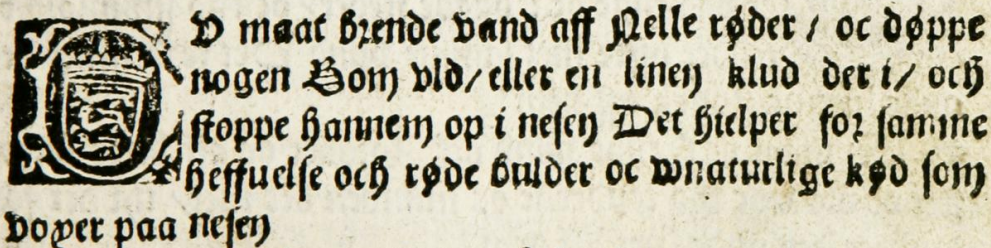 DV maat brende vand aff Nelle røder / oc døppe
nogen Bom vld / eller en linen klud der i / och
stoppe hannem op i nesen Det hielper for samme
heffuelse och røde bulder oc wnaturlige kød som
voxer paa nesen